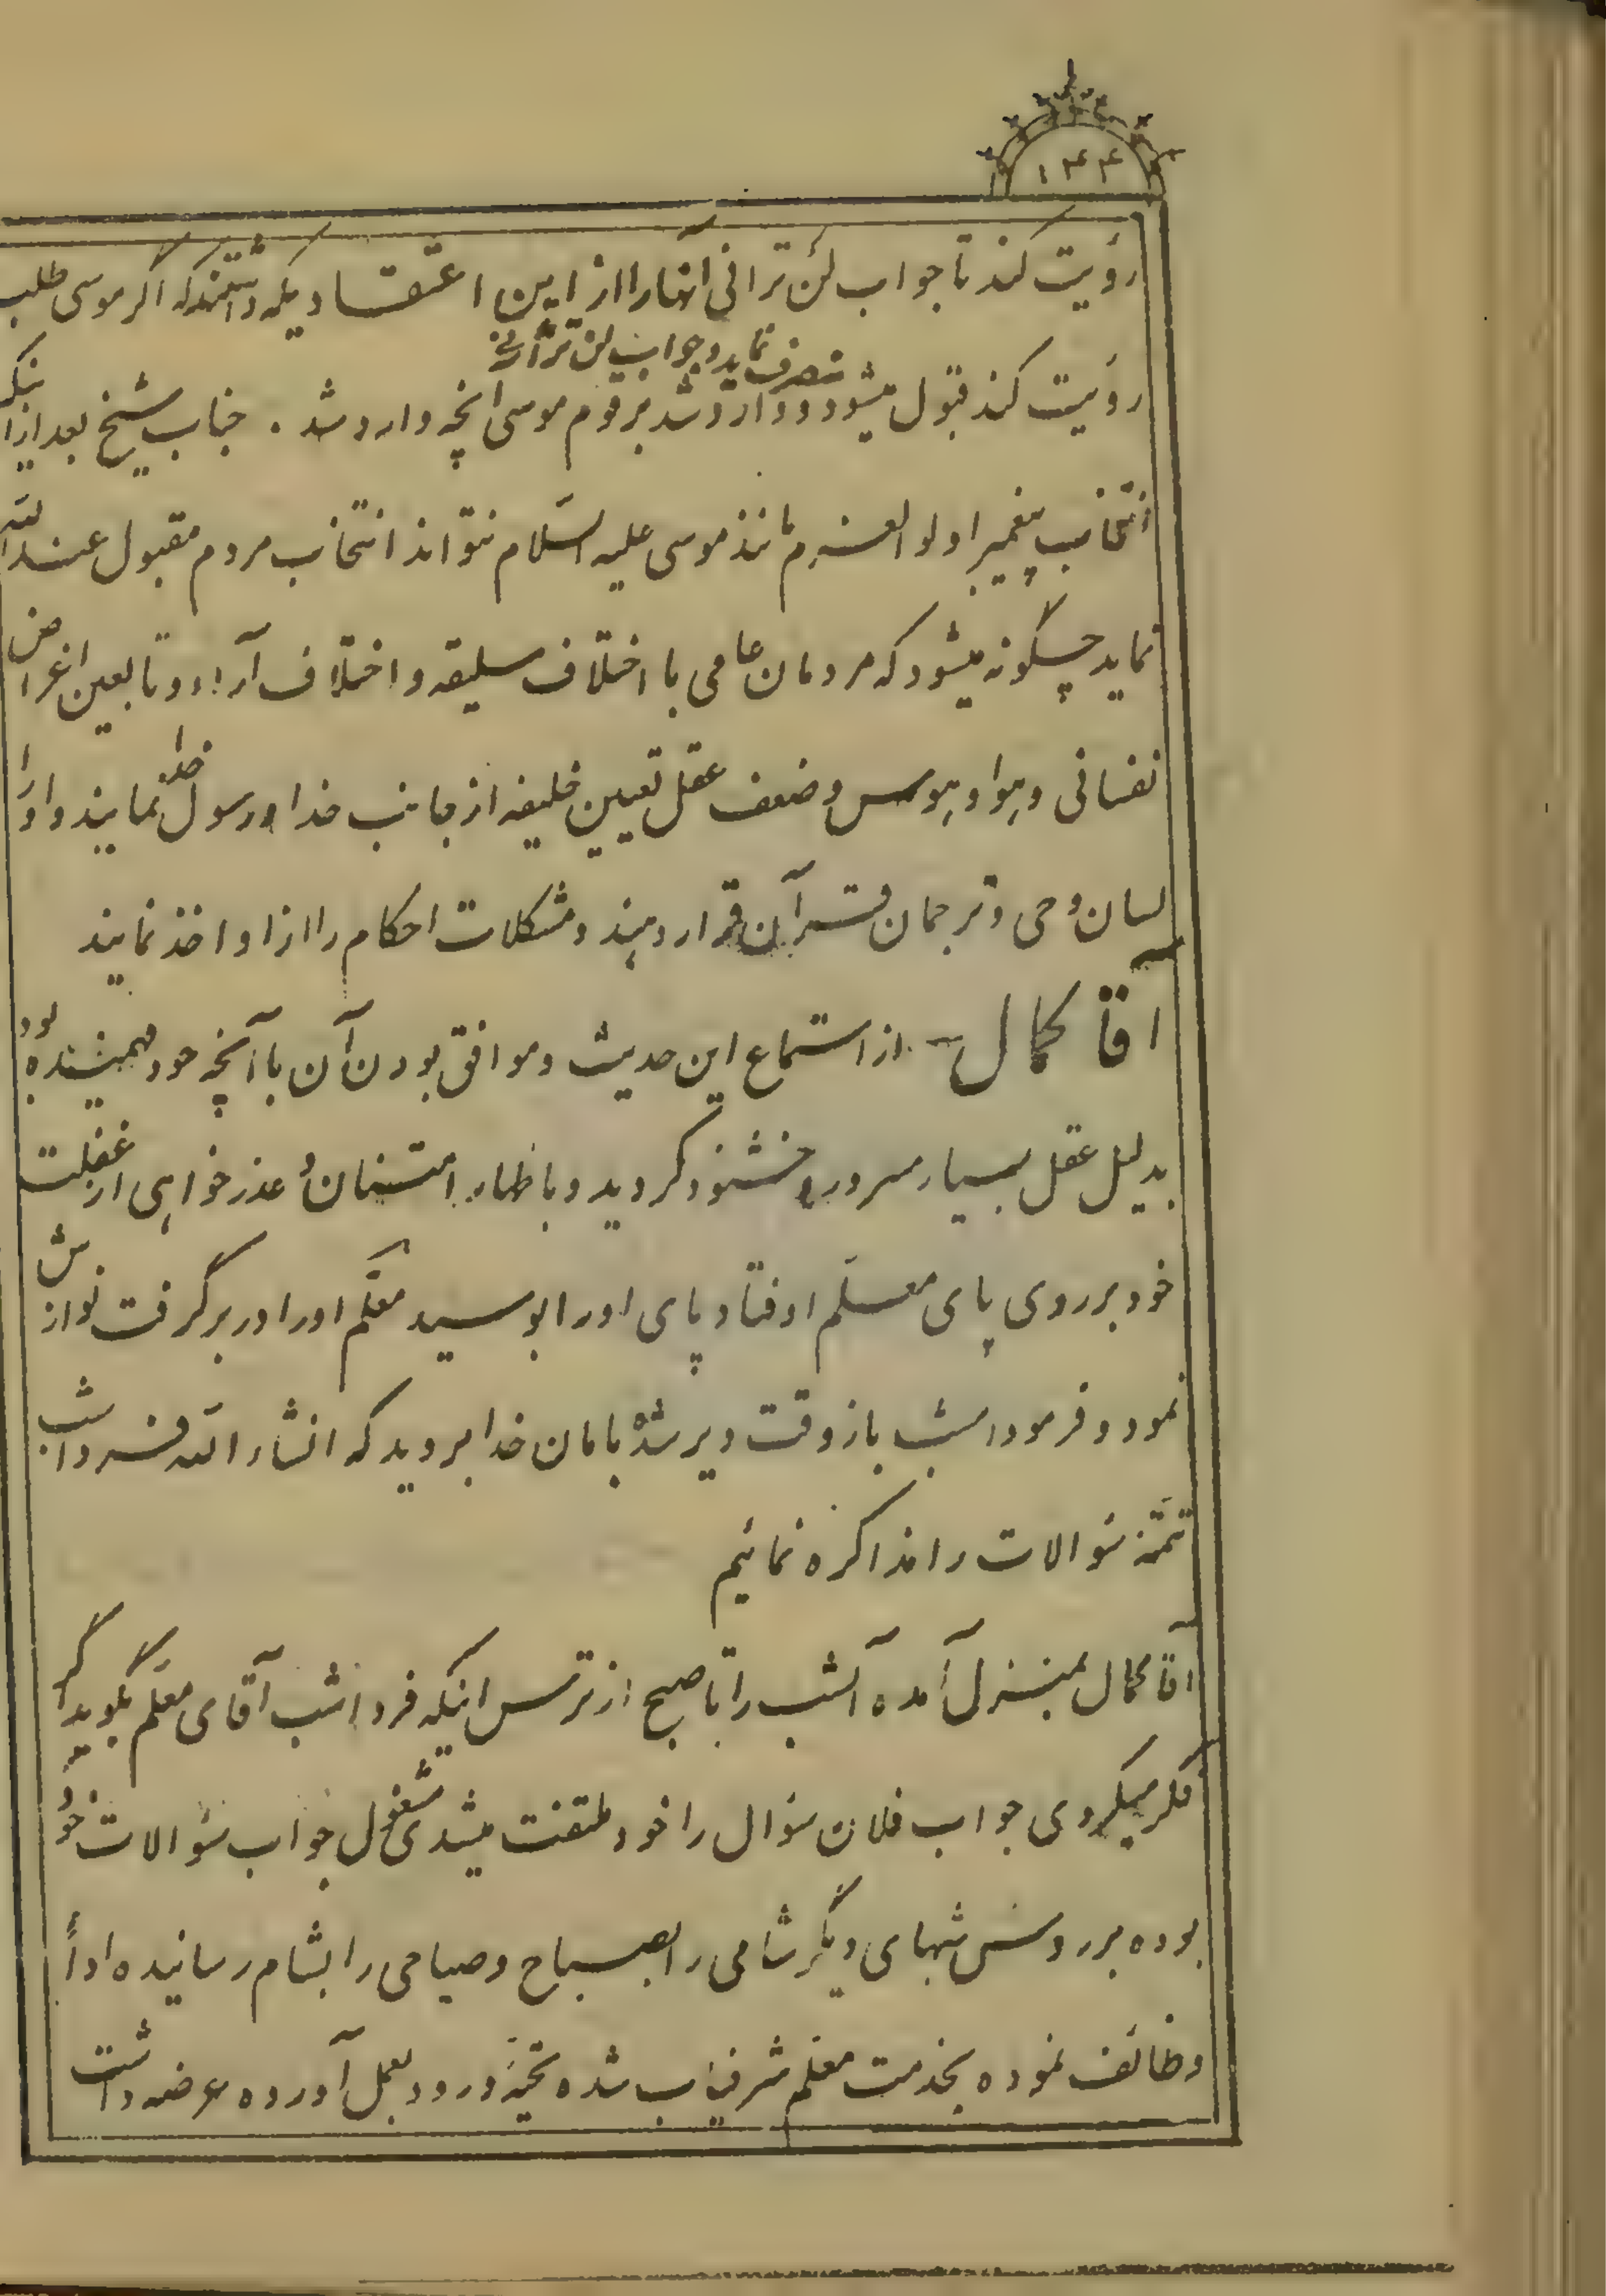 ۱۴۴
رؤیت کند تا جواب لن ترانی آنها را از این اعتقادیکه داشتندکه اگر موسی طلب
منصرف نماید و جواب لن ترانی
رؤیت کند قبول میشود وارد شد بر قوم موسی آنچه وارد شد . جناب شیخ بعد از اینکه
انتخاب پیغمبر اولو العزم مانند موسی علیه السّلام نتواند انتخاب مردم مقبول عند الله
نماید چگونه میشود که مردمان عامی با اختلاف سلیقه و اختلاف آراء و تابعین اغراض
نفسانی و هوا و هوس و ضعف عقل تعیین خلیفه از جانب خدا و رسول خدا نمایند و او را
لسان وحی و ترجمان قرآن قرار دهند و مشکلات احکام را از او اخذ نمایند
آقا کمال – از استماع این حدیث و موافق بودن آن با آنچه خود فهمیده بود
بدلیل عقل بسیار مسرور و خشنود گردید و باظهار امتنان و عذر خواهی از غفلت
خود بر روی پای معلّم افتاد پای او را بوسید معلّم او را در بر گرفت نوازش
نمود و فرمود امشب باز وقت دیر شده بامان خدا بروید که انشاء الله فردا شب
تتمّهٔ سؤالات را مذاکره نمائیم
آقا کمال بمنزل آمده آنشب را تا صبح از ترس اینکه فردا شب آقای معلّم بگوید اگر
فکر میکردی جواب فلان سؤال را خود ملتفت میشدی مشغول جواب سؤالات خود
بوده بر روش شبهای دیگر شامی را بصباح و صباحی را بشام رسانیده اداً
وظائف نموده بخدمت معلم شرفیاب شده تحیّهٔ ورود بعمل آورده عرضه داشت